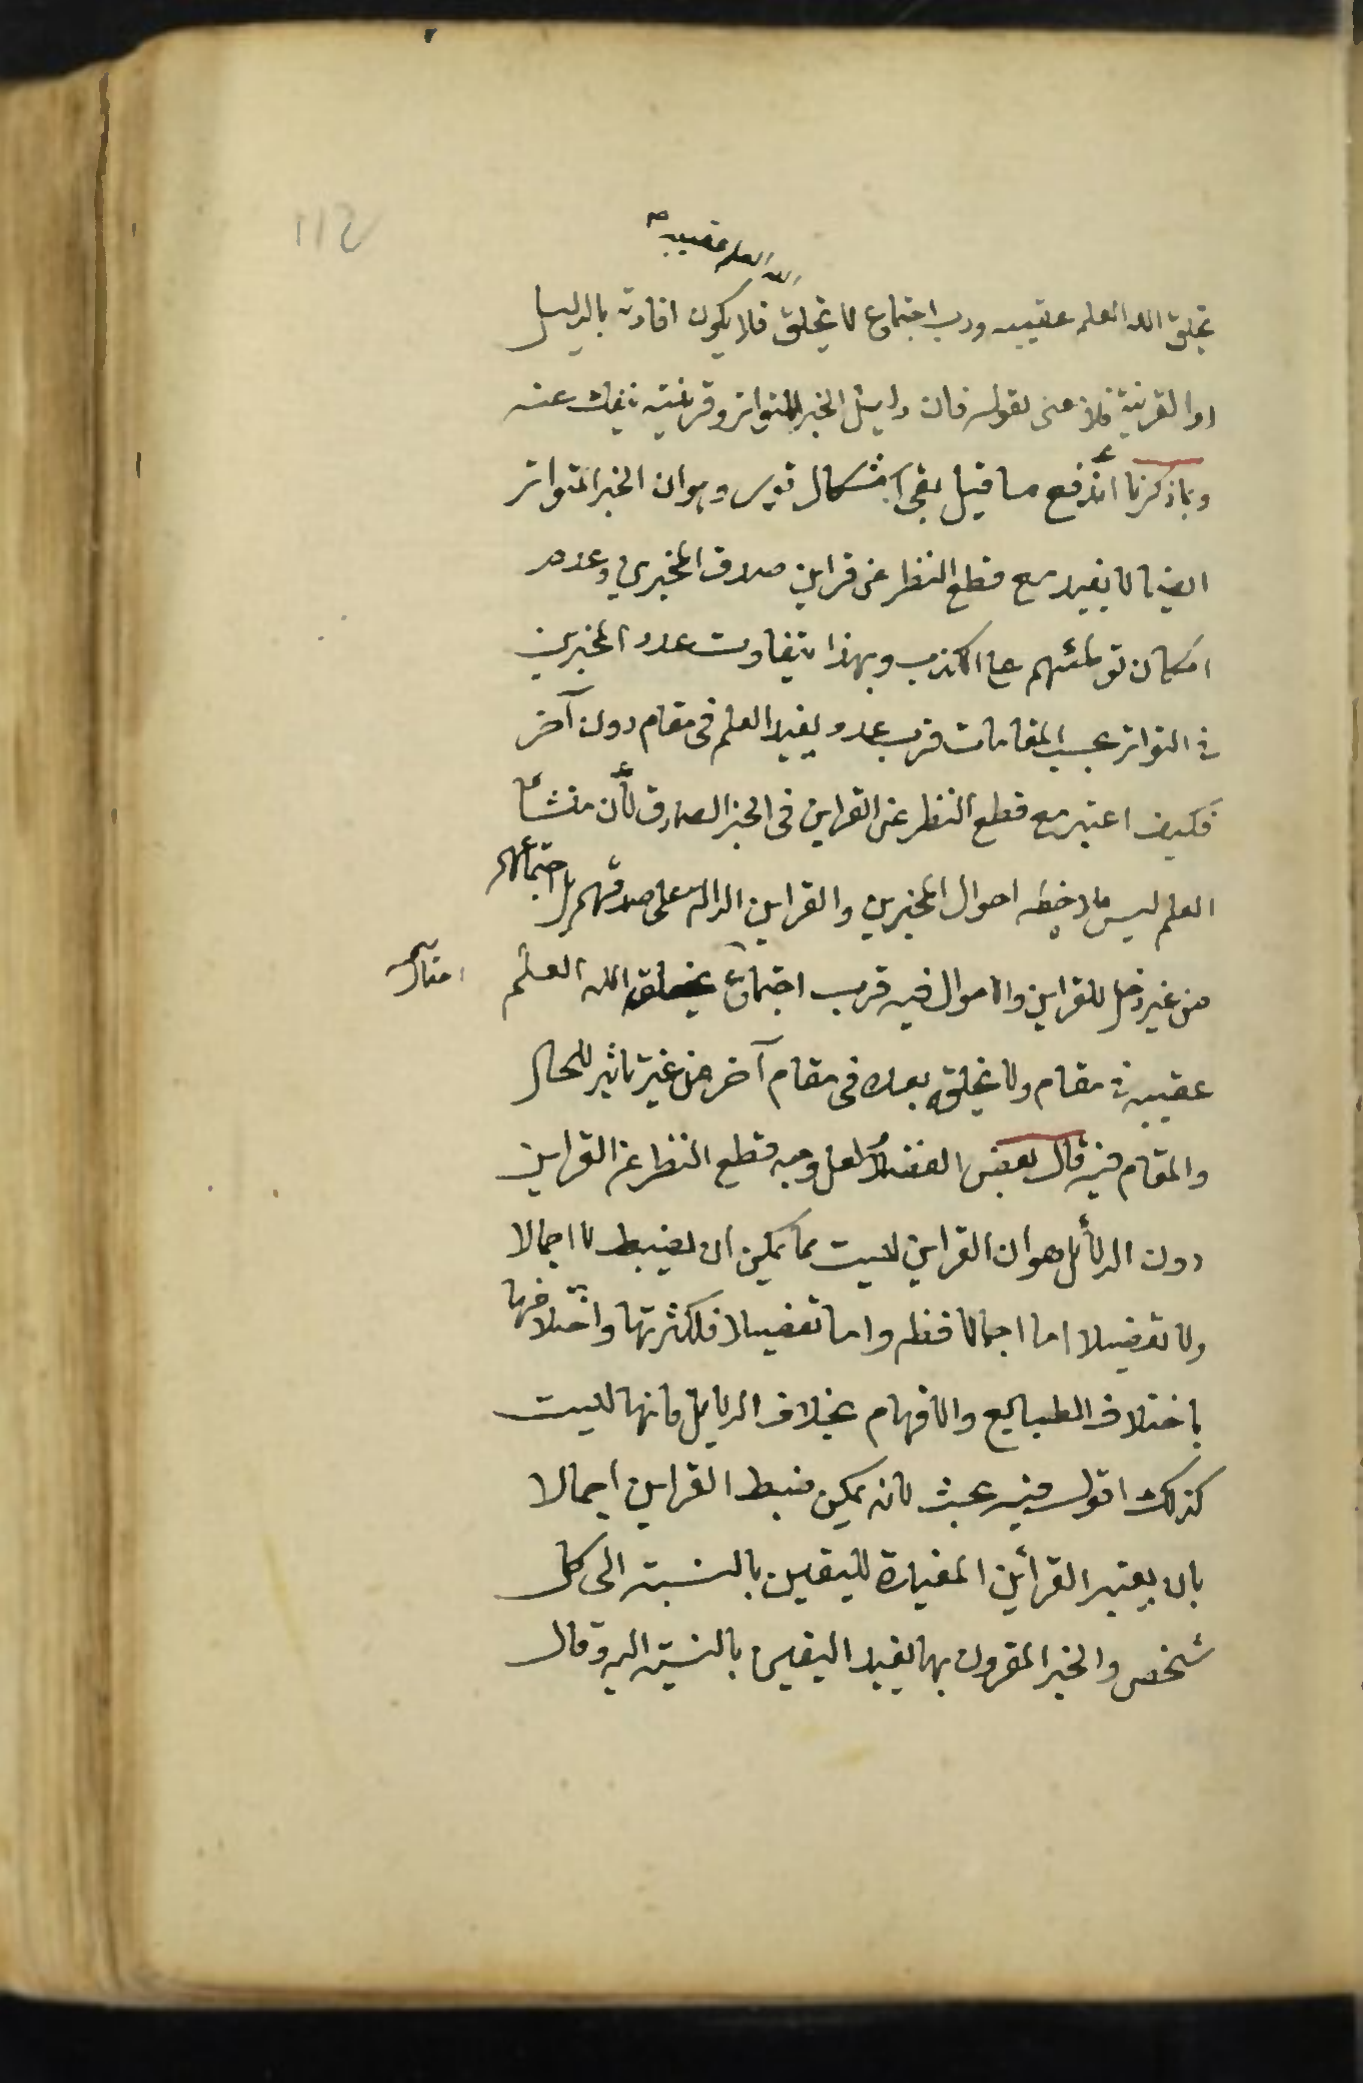 ١١٤
الله العلم عقيبه
يخلق الله العلم عقيبه ورب اجتماع لا يخلق فلا يكون افادته بالدليل
او القرينة فلا معنى لقوله فان دليل الخبر المتواتر وقرينته ينفك عنه
وبما ذكرنا اندفع ما قيل بقى اشكال قوى وهو ان الخبر المتواتر
ايضا لا يفيد مع قطع النظر عن قراين صدق المخبرين وعدم
امكان تواطئهم على الكذب وبهذا يتفاوت عدد المخبرين
فى التواتر بحسب المقامات فرب عدد يفيد العلم فى مقام دون آخر
فكيف اعتبر مع قطع النظر عن القراين فى الخبر الصادق لأن منشأ
العلم ليس ملاحظه احوال المخبرين والقراين الداله على صدقهم بل اجتماعهم
من غير دخل للقراين والاحوال فيه فرب اجتماع يخلق الله العلم
عقيبه فى مقام ولا يخلق بعده فى مقام آخر من غير تاثير للحال
والمقام فيه قال بعض الفضلاء لعل وجه قطع النظر عن القراين
دون الدلائل هو ان القراين ليست مما يمكن ان يضبط لا اجمالا
ولا تفصيلا اما اجمالا فظه واما تفصيلا فلكثرتها واختلافها
باختلاف الطبايع والافهام بخلاف الدلايل فانها ليست
كذلك اقول فيه بحث لانه يمكن ضبط القراين اجمالا
بان يعتبر القرائن المفيدة لليقين بالنسبة الى كل
شخص والخبر المقرون بها يفيد اليقين بالنسبة اليه وقال